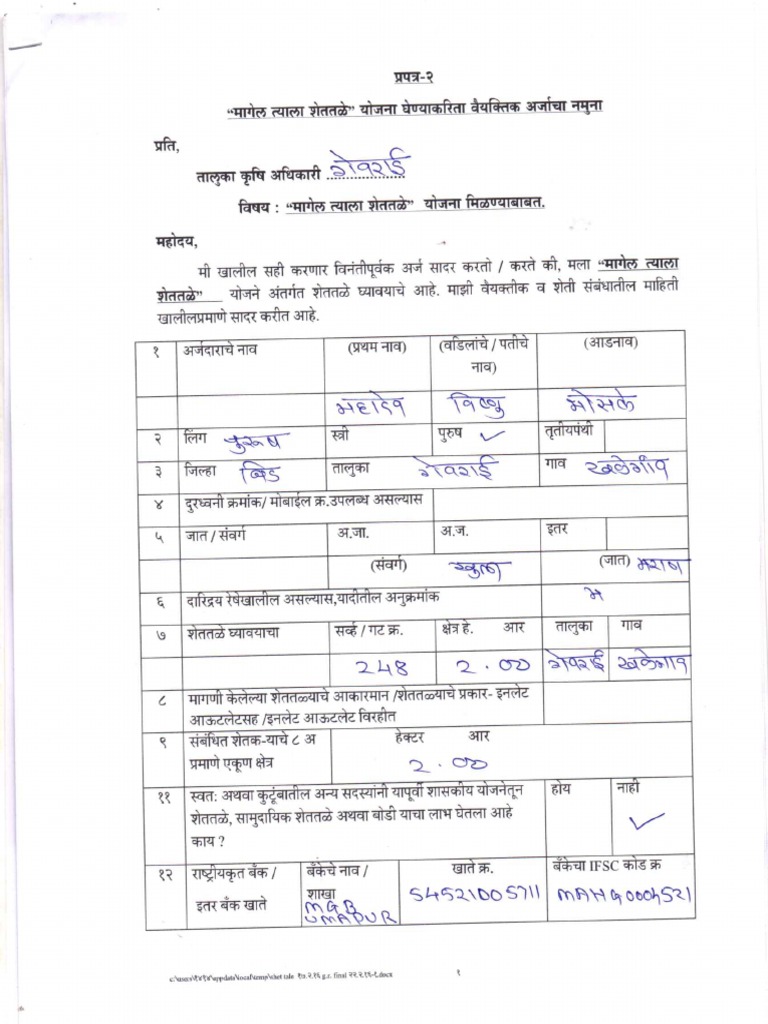 प्रपत्र-२
“मागेल त्याला शेततळे” योजना घेण्याकरिता वैयक्तिक अर्जाचा नमुना
प्रति,
तालुका कृषि अधिकारी गेवराई
विषय : “मागेल त्याला शेततळे” योजना मिळण्याबाबत.
महोदय,
मी खालील सही करणार विनंतीपूर्वक अर्ज सादर करतो / करते की, मला “मागेल त्याला
शेततळे” योजने अंतर्गत शेततळे घ्यावयाचे आहे. माझी वैयक्तीक व शेती संबंधातील माहिती
खालीलप्रमाणे सादर करीत आहे.
१ अर्जदाराचे नाव (प्रथम नाव) (वडिलांचे / पतीचे (आडनाव)
नाव)
महादेव विष्णु मोसके
२ लिंग पुरूष स्त्री पुरुष ✓ तृतीयपंथी
३ जिल्हा बिड तालुका गेवराई गाव खळेगाव
४ दुरध्वनी क्रमांक/ मोबाईल क्र.उपलब्ध असल्यास
५ जात / संवर्ग अ.जा. अ.ज. इतर
(संवर्ग) खुला (जात) मराठा
६ दारिद्रय रेषेखालील असल्यास,यादीतील अनुक्रमांक
७ शेततळे घ्यावयाचा सर्व्ह / गट क्र. क्षेत्र हे. आर तालुका गाव
248 2.00 गेवराई खळेगाव
८ मागणी केलेल्या शेततळ्याचे आकारमान /शेततळ्याचे प्रकार- इनलेट
आऊटलेटसह /इनलेट आऊटलेट विरहीत
९ संबंधित शेतक-याचे ८ अ हेक्टर आर
प्रमाणे एकूण क्षेत्र 2.00
११ स्वत: अथवा कुटूंबातील अन्य सदस्यांनी यापूर्वी शासकीय योजनेतून होय नाही
शेततळे, सामुदायिक शेततळे अथवा बोडी याचा लाभ घेतला आहे ✓
काय ?
१२ राष्ट्रीयकृत बँक / बँकेचे नाव / खाते क्र. बँकेचा IFSC कोड क्र
इतर बँक खाते शाखा 54521005711 MAHG0004521
MGB
UMAPUR
१